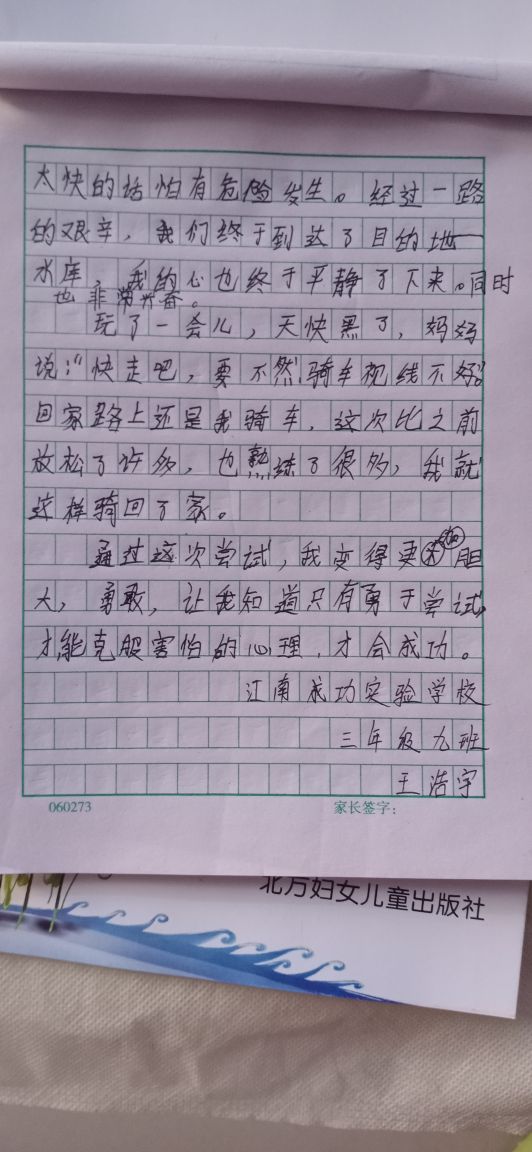 太快的话怕有危险发生。经过一路
的艰辛，我们终于到达了目的地——
水库，我的心也终于平静了下来。同时
也非常兴奋。
玩了一会儿，天快黑了，妈妈
说：“快走吧，要不然骑车视线不好。”
回家路上还是我骑车，这次比之前
放松了许多，也熟练了很多，我就
这样骑回了家。
通过这次尝试，我变得更加胆
大，勇敢，让我知道只有勇于尝试，
才能克服害怕的心理，才会成功。
江南成功实验学校
三年级九班
王浩宇
060273
家长签字：
北方妇女儿童出版社